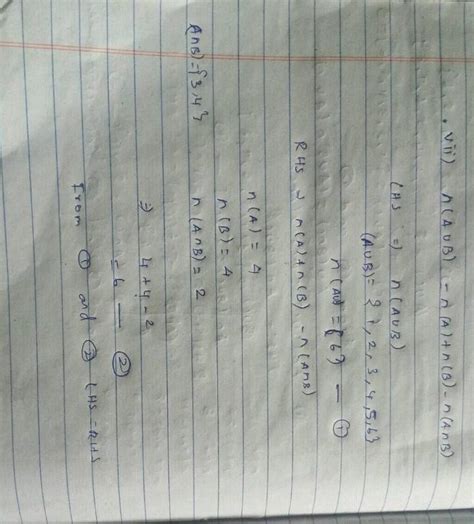 vii) n(A∪B) = n(A)+n(B)-n(A∩B)
LHS ⇒ n(A∪B)
(A∪B) = {1,2,3,4,5,6}
n(A∪ = {6} — ①
RHS ⇒ n(A)+n(B) - n(A∩B)
n(A) = 4
n(B) = 4
A∩B) = {3,4} n(A∩B) = 2
⇒ 4+4-2
= 6 — ②
From ① and ② LHS = RHS